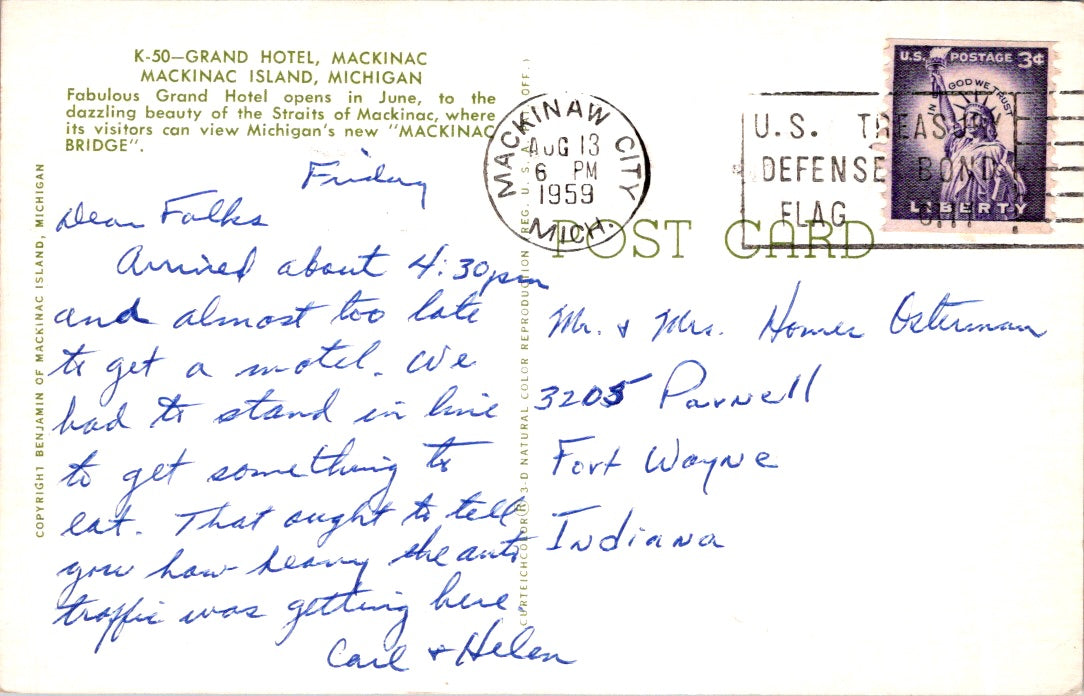 K-50—GRAND HOTEL, MACKINAC
MACKINAC ISLAND, MICHIGAN
Fabulous Grand Hotel opens in June, to the
dazzling beauty of the Straits of Mackinac, where
its visitors can view Michigan's new "MACKINAC
BRIDGE".
COPYRIGHT BENJAMIN OF MACKINAC ISLAND, MICHIGAN
Friday
Dear Folks
Arrived about 4:30pm
and almost too late
to get a motel. We
had to stand in line
to get something to
eat. That ought to tell
you how heavy the auto
traffic was getting here.
Carl & Helen
CURTEICHCOLOR® 3-D NATURAL COLOR REPRODUCTION REG. U.S.A. OFF.)
MACKINAW CITY
AUG 13
6 PM
1959
MICH.
U.S. TREASURY
DEFENSE BOND
FLAG
U.S. POSTAGE 3¢
IN GOD WE TRUST
LIBERTY
POST CARD
Mr. & Mrs. Homer Osterman
3205 Parnell
Fort Wayne
Indiana